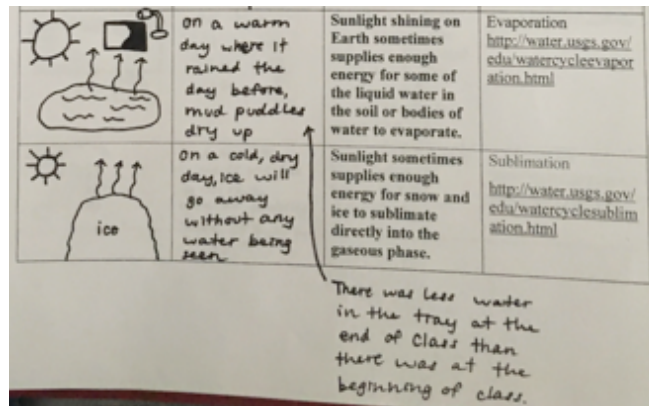 on a warm
day where it
rained the
day before,
mud puddles
dry up
Sunlight shining on
Earth sometimes
supplies enough
energy for some of
the liquid water in
the soil or bodies of
water to evaporate.
Evaporation
http://water.usgs.gov/
edu/watercycleevapor
ation.html
ice
on a cold, dry
day, ice will
go away
without any
water being
seen
Sunlight sometimes
supplies enough
energy for snow and
ice to sublimate
directly into the
gaseous phase.
Sublimation
http://water.usgs.gov/
edu/watercyclesublim
ation.html
There was less water
in the tray at the
end of class than
there was at the
beginning of class.